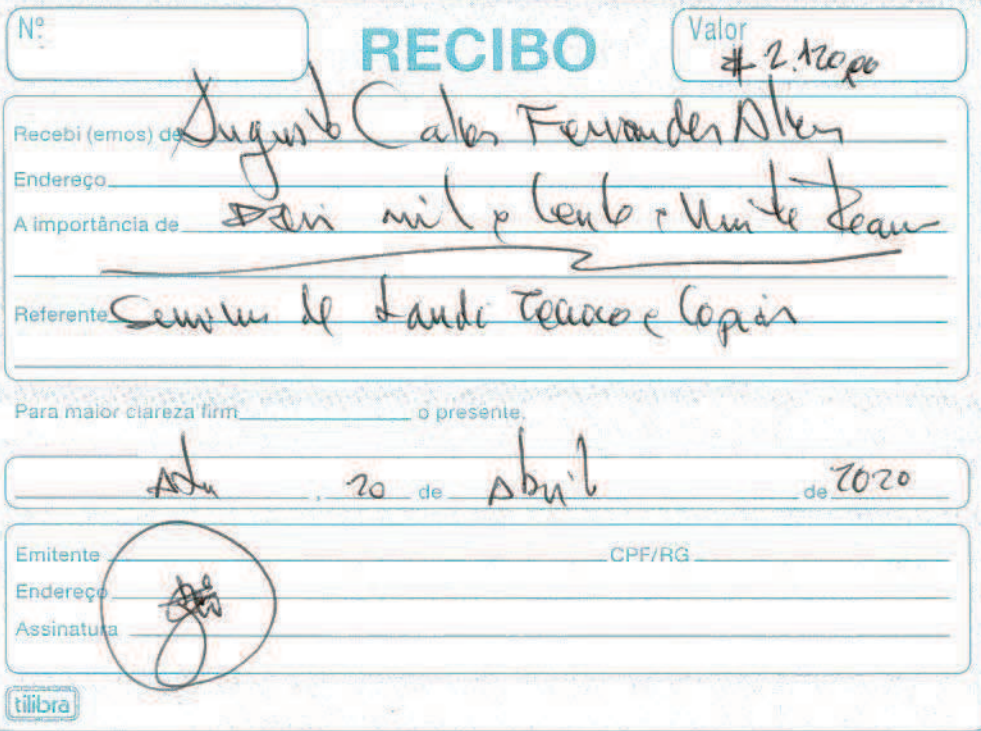 Nº
RECIBO
Valor
# 2.120,00
Recebi (emos) de Augusto Carlos Fernandes Alves
Endereço
A importância de Dois mil e Cento e Vinte Reais
Referente Serviços de Laudo Tecnico e Copias
Para maior clareza firm o presente.
, 20 de Abril de 2020
Emitente CPF/RG
Endereço
Assinatura
tilibra